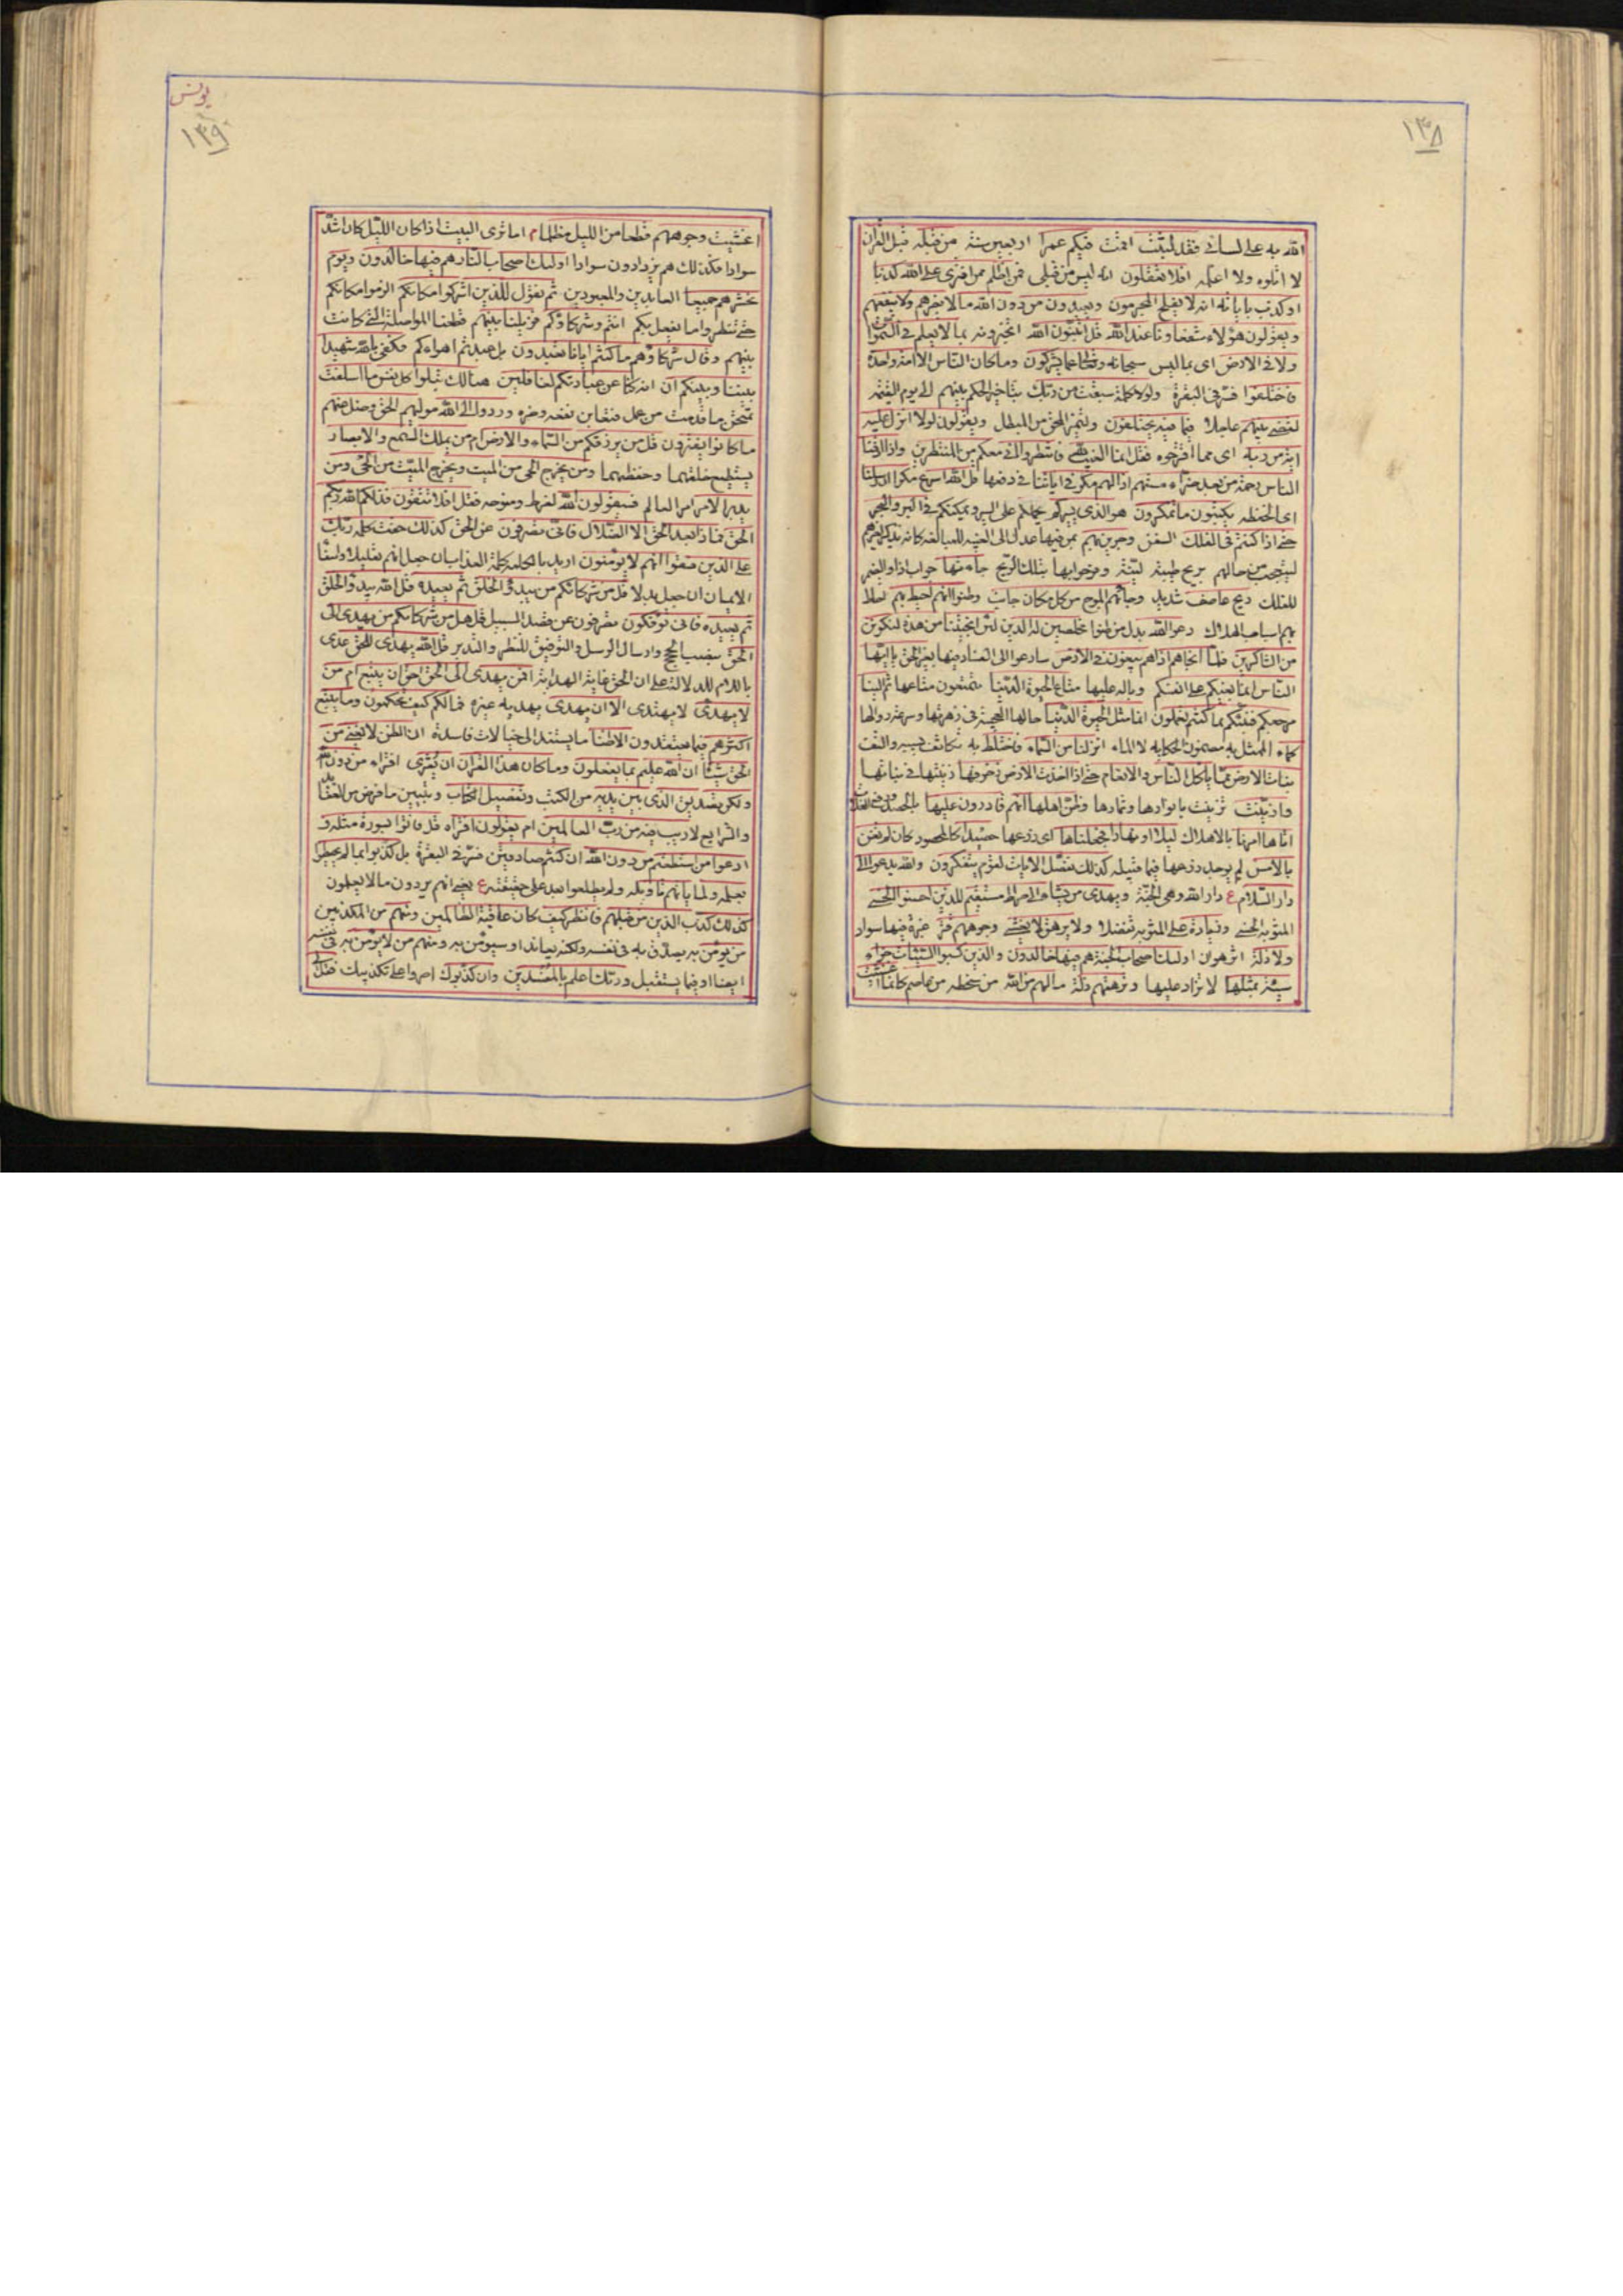 ١٣٨
الله به على لسانى فقد لبثت اقمت فيكم عمرا اربعين سنة من قبله قبل القرآن
لا اتلوه ولا اعلمه افلا تعقلون انه ليس من قبلى فمن اظلم ممن افترى على الله كذبا
او كذب باياته انه لا يفلح المجرمون ويعبدون من دون الله ما لا يضرهم ولا ينفعهم
ويقولون هؤلاء شفعاؤنا عند الله قل اتنبئون الله اتخبرونه بما لا يعلم فى السموات
ولا فى الارض اى بما ليس سبحانه وتعالى عما يشركون وما كان الناس الا امة واحدة
فاختلفوا فسر فى البقرة ولولا كلمة سبقت من ربك بتاخير الحكم بينهم الى يوم القيمة
لقضى بينهم عاجلا فيما فيه يختلفون وليتميز المحق من المبطل ويقولون لولا انزل عليه
اية من ربه اى مما اقترحوه فقل انما الغيب لله فانتظروا انى معكم من المنتظرين واذا اذقنا
الناس رحمة من بعد ضراء مستهم اذا لهم مكر فى اياتنا فى دفعها قل الله اسرع مكرا ان رسلنا
اى الحفظة يكتبون ما تمكرون هو الذى يسيركم يحملكم على السير ويمكنكم فى البر والبحر
حتى اذا كنتم فى الفلك السفن وجرين بهم بمن فيها عدل الى الغيبة للمبالغة كانه يذكر لغيرهم
ليتعجب من حالهم بريح طيبة لينة وفرحوا بها بتلك الريح جاءتها جواب اذا والضمير
للفلك ريح عاصف شديد وجاءهم الموج من كل مكان جانب وظنوا انهم احيط بهم تسلط
بهم اسباب الهلاك دعوا الله بدل من ظنوا مخلصين له الدين لئن انجيتنا من هذه لنكونن
من الشاكرين فلما انجاهم اذا هم يبغون فى الارض سارعوا الى الفساد فيها بغير الحق يا ايها
الناس انما بغيكم على انفسكم وباله عليها متاع الحيوة الدنيا تتمتعون متاعها ثم الينا
مرجعكم فننبئكم بما كنتم تعملون انما مثل الحيوة الدنيا حالها العجيبة فى زهرتها وسرعة زوالها
كماء الممثل به مضمون الحكاية لا الماء انزلناه من السماء فاختلط به تكاثف بسببه والتف
نبات الارض مما ياكل الناس والانعام حتى اذا اخذت الارض زخرفها زينتها فى نباتها
وازينت تزينت بانوارها وثمارها وظن اهلها انهم قادرون عليها بالحصد ورفع الغلة
اتاها امرنا بالاهلاك ليلا او نهارا فجعلناها اى زرعها حصيدا كالمحصود كان لم تغن
بالامس لم يوجد زرعها فيما قبيله كذلك نفصل الايات لقوم يتفكرون والله يدعو الى
دار السلام ع دار الله وهى الجنة ويهدى من يشاء الى صراط مستقيم للذين احسنوا الحسنى
المثوبة الحسنى وزيادة على المثوبة تفضلا ولا يرهق لا يغشى وجوههم قتر غبرة فيها سواد
ولا ذلة اثر هوان اولئك اصحاب الجنة هم فيها خالدون والذين كسبوا السيئات جزاء
سيئة بمثلها لا تزاد عليها وترهقهم ذلة ما لهم من الله من سخطه من عاصم كانما اغشيت
يونس
١٣٩
اغشيت وجوههم قطعا من الليل مظلما م اما ترى البيت اذا كان الليل كان اشد
سوادا فكذلك هم يزدادون سوادا اولئك اصحاب النار هم فيها خالدون ويوم
نحشرهم جميعا العابدين والمعبودين ثم نقول للذين اشركوا مكانكم الزموا مكانكم
حتى تنظروا ما يفعل بكم انتم وشركاؤكم فزيلنا بينهم قطعنا المواصلة التى كانت
بينهم وقال شركاؤهم ما كنتم ايانا تعبدون بل عبدتم اهواءكم فكفى بالله شهيدا
بيننا وبينكم ان انه كنا عن عبادتكم لغافلين هنالك تبلوا كل نفس ما اسلفت
تتحقق ما قدمت من عمل فتعاين نفعه وضره وردوا الى الله موليهم الحق وضل عنهم
ما كانوا يفترون قل من يرزقكم من السماء والارض ام من يملك السمع والابصار
يستطيع خلقهما وحفظهما ومن يخرج الحى من الميت ويخرج الميت من الحى ومن
يدبر الامر امر العالم فسيقولون الله لفرط وضوحه فقل افلا تتقون فذلكم الله ربكم
الحق فماذا بعد الحق الا الضلال فانى تصرفون عن الحق كذلك حقت كلمة ربك
على الذين فسقوا انهم لا يؤمنون اريد بالكلمة كلمة العذاب ان جعل انهم تعليلا واسفا
الايمان ان جعل بدلا قل من شركائكم من يبدؤ الخلق ثم يعيده قل الله يبدؤ الخلق
ثم يعيده فانى تؤفكون تصرفون عن قصد السبيل قل هل من شركائكم من يهدى الى
الحق بنصب الحجج وارسال الرسل والتوفيق للنظر والتدبر قل الله يهدى للحق عدى
باللام للدلالة على ان الحق غاية الهداية افمن يهدى الى الحق احق ان يتبع ام من
لا يهدى لا يهتدى الا ان يهدى يهديه غيره فما لكم كيف تحكمون وما يتبع
اكثرهم فيما يعتقدون الا ظنا ما يستند الى خيالات فاسدة ان الظن لا يغنى من
الحق شيئا ان الله عليم بما يفعلون وما كان هذا القرآن ان يفترى افتراء من دون الله
ولكن تصديق الذى بين يديه من الكتب وتفصيل الكتاب وتبيين ما فرض من العقائد
والشرايع لا ريب فيه من رب العالمين ام يقولون افتراه قل فاتوا بسورة مثله و
ادعوا من استطعتم من دون الله ان كنتم صادقين فسر فى البقرة بل كذبوا بما لم يحيطوا
بعلمه ولما ياتهم تاويله ولم يطلعوا بعد على حقيقته ع يعنى انهم يردون ما لا يعلمون
كذلك كذب الذين من قبلهم فانظر كيف كان عاقبة الظالمين ومنهم من المكذبين
من يؤمن به يصدق به فى نفسه ولكنه يعاند او سيؤمن به ومنهم من لا يؤمن به فى نفسه
ايضا او فيما يستقبل وربك اعلم بالمفسدين وان كذبوك اصروا على تكذيبك فقل لى